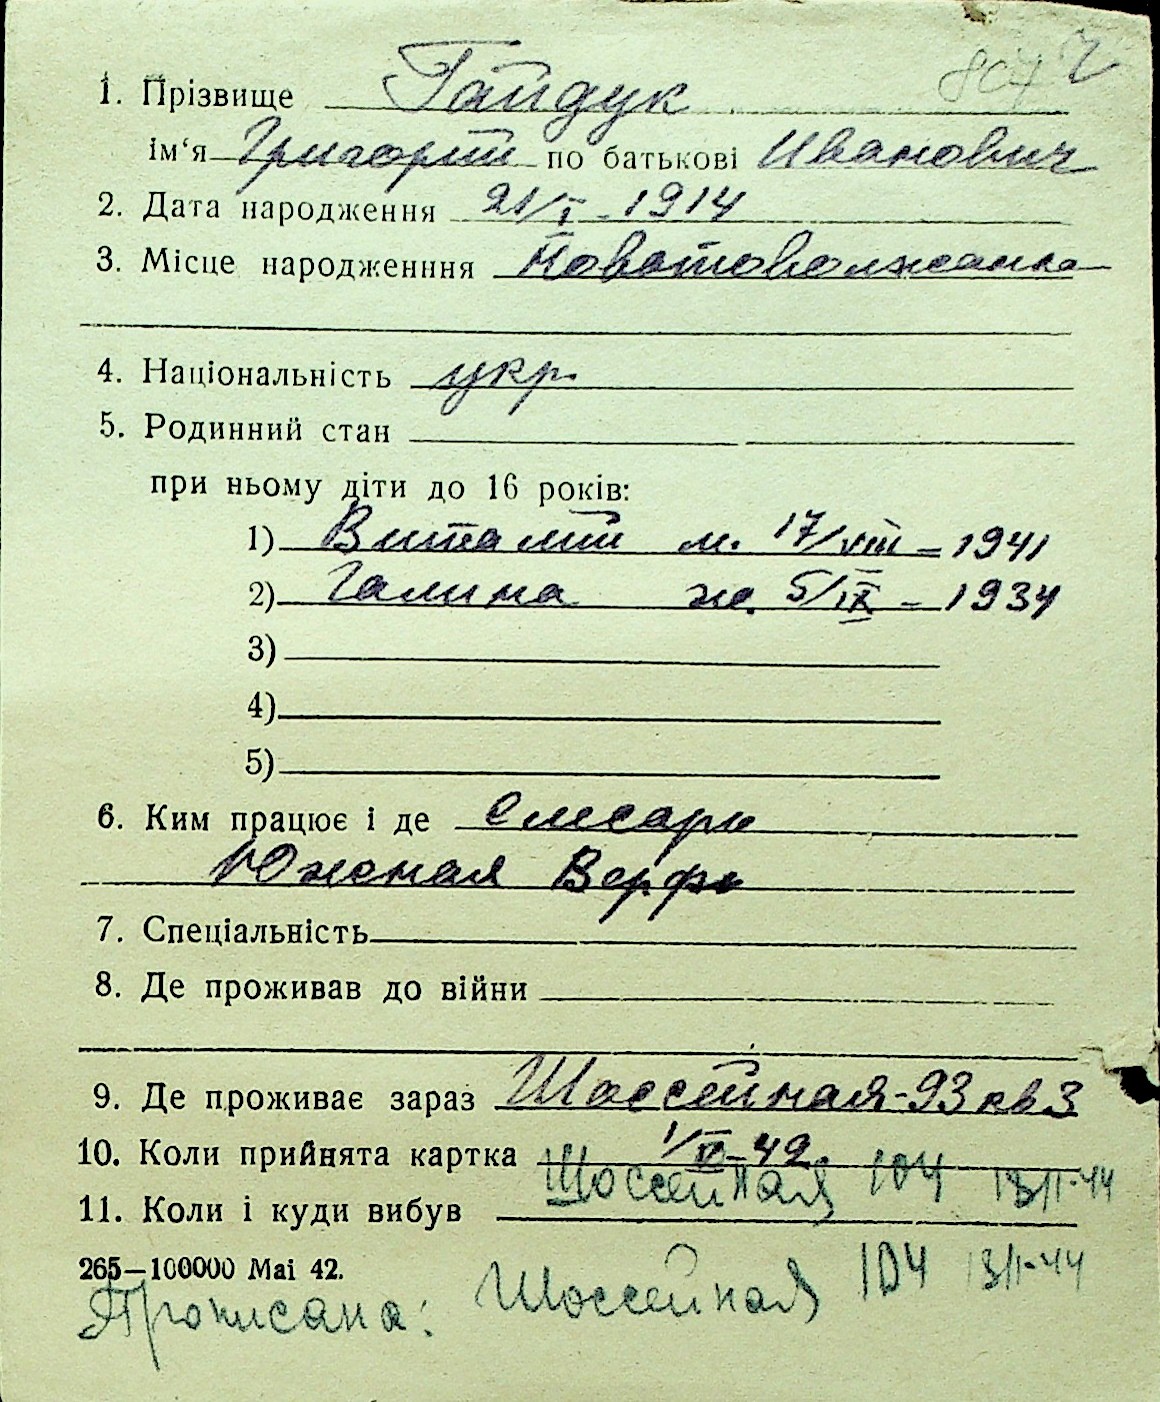 807 2
1. Прізвище Гайдук
ім‘я Григорий по батькові Иванович
2. Дата народження 21/I - 1914
3. Місце народженння
4. Національність укр.
5. Родинний стан
при ньому діти до 16 років:
1) Виталий м. 17/VIII - 1941
2) Галина ж. 5/IX - 1934
3)
4)
5)
6. Ким працює і де слесарь
Южная Верфь
7. Спеціальність
8. Де проживав до війни
9. Де проживає зараз Шоссейная-93 кв 3
10. Коли прийнята картка 42.
Шоссейная 104 13/I-44
11. Коли і куди вибув
265—100000 Mai 42.
Прописана: Шоссейная 104 13/I-44